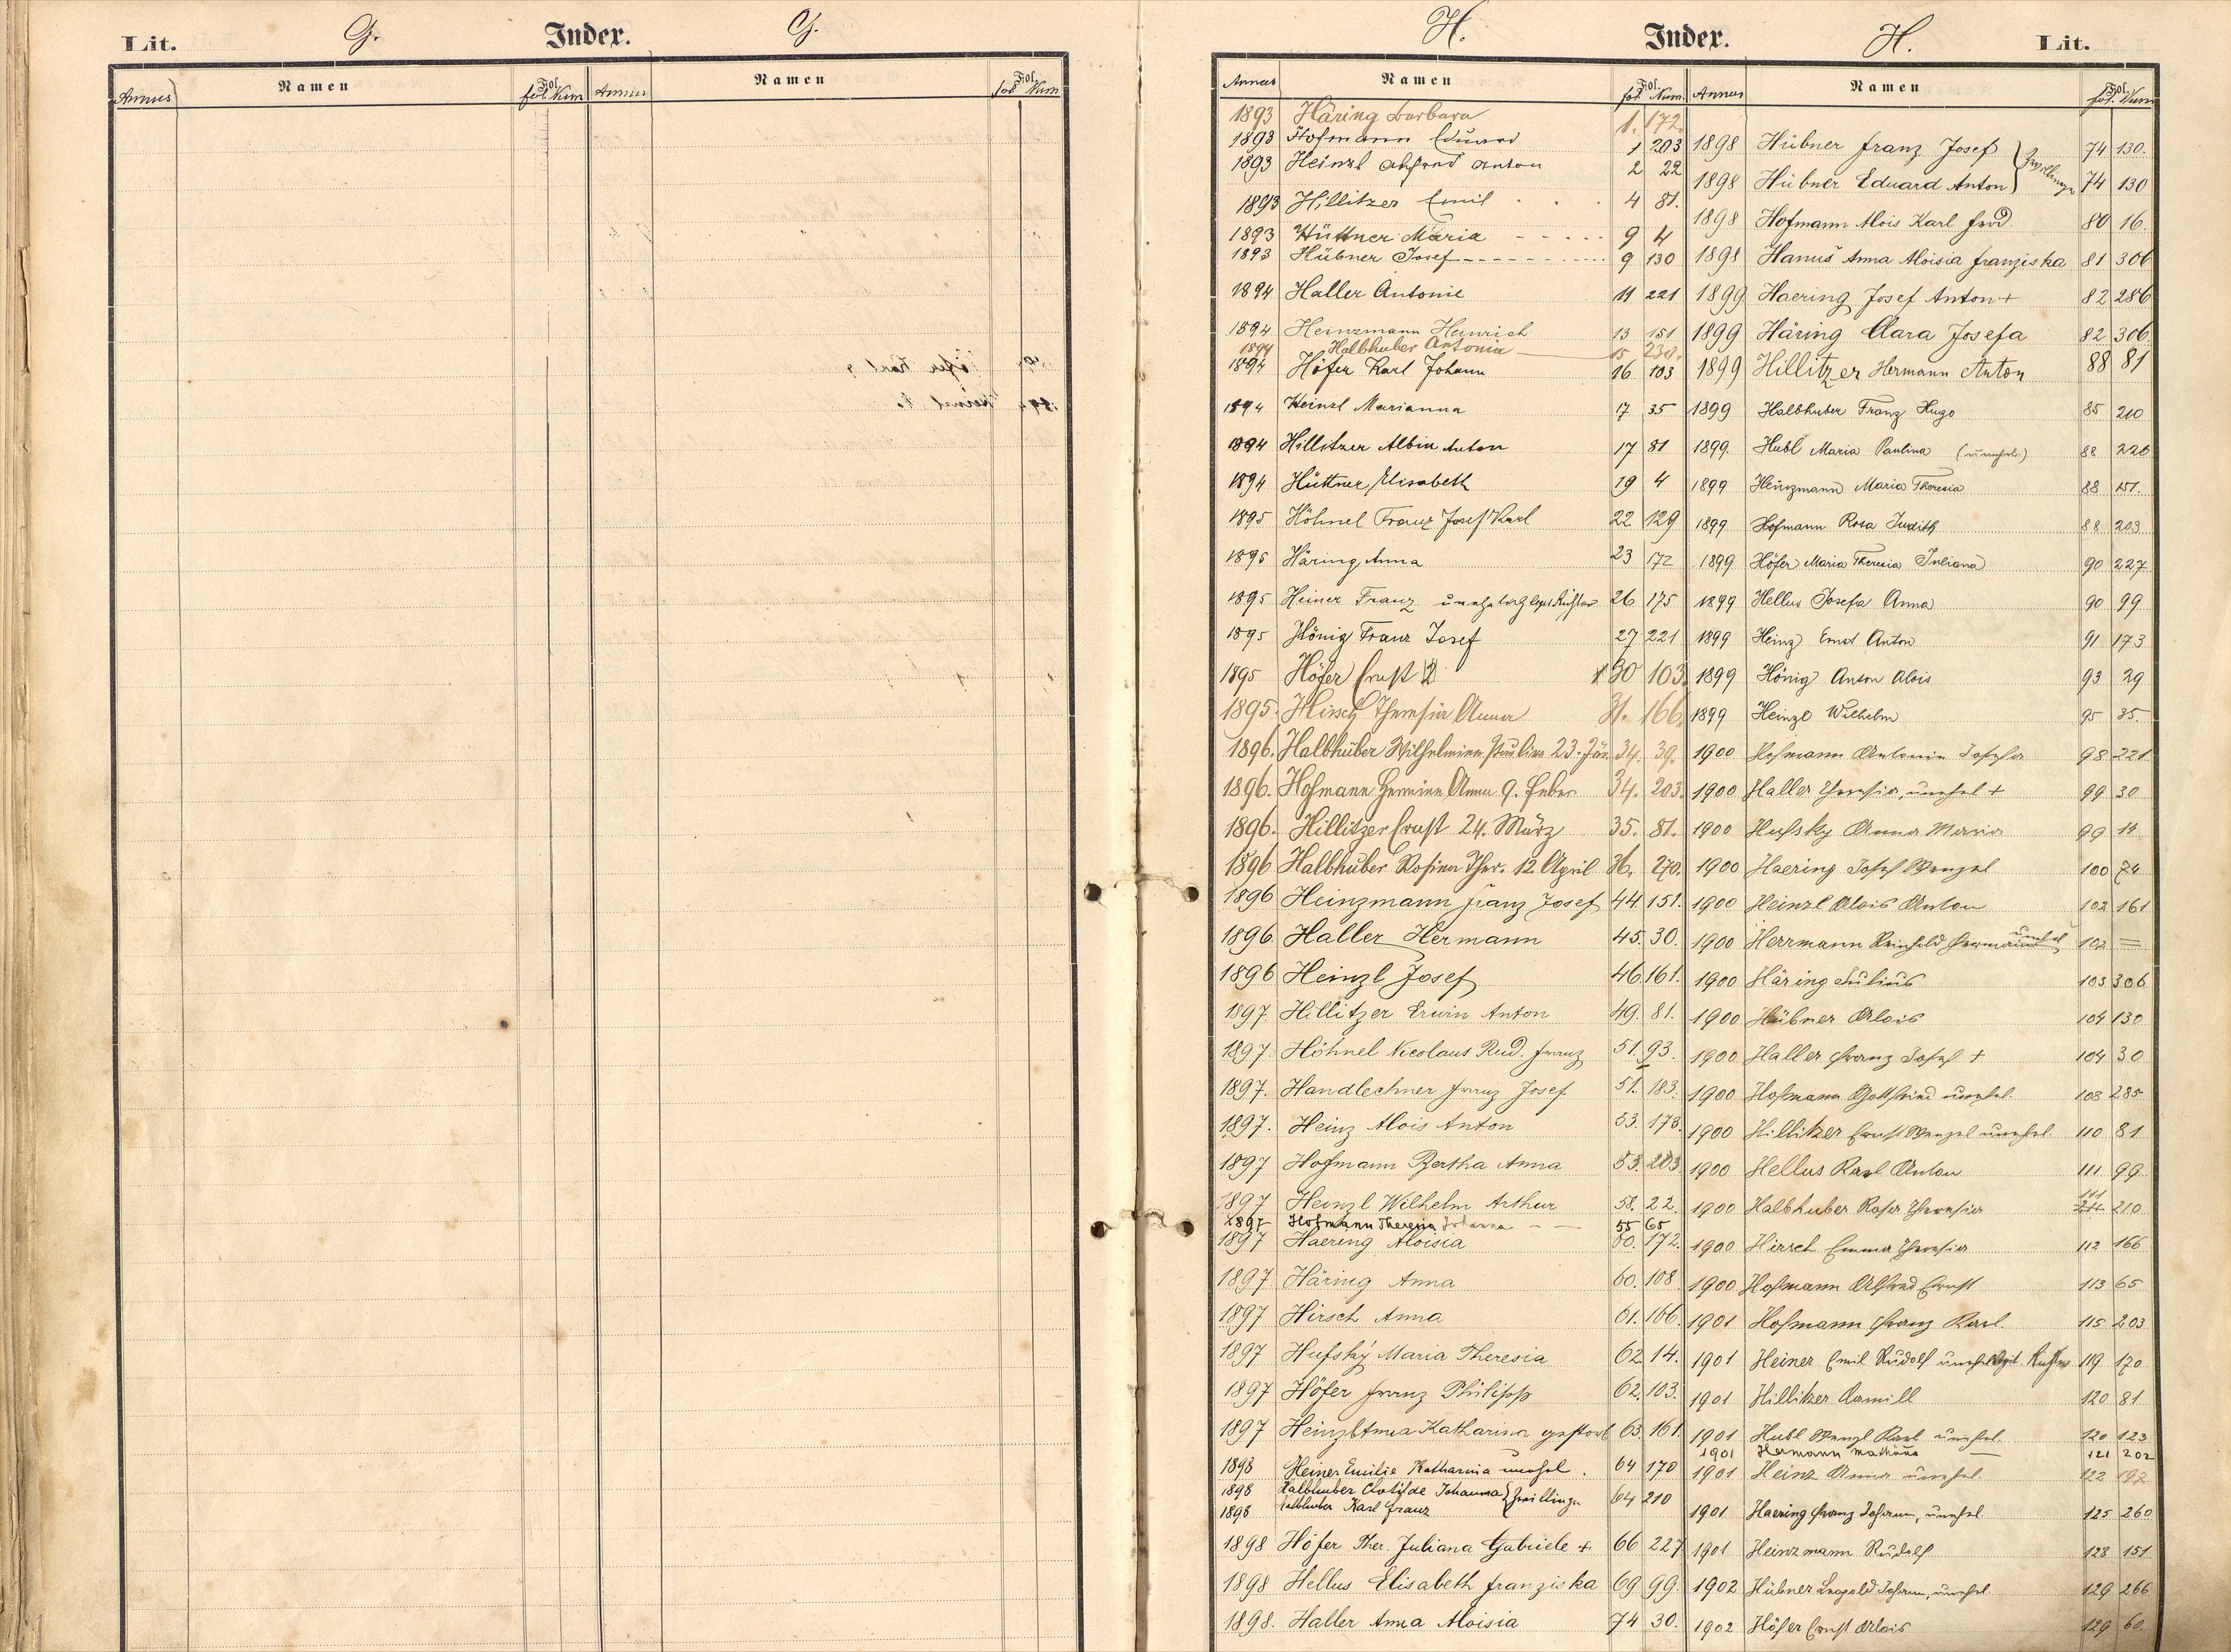 Lit. G. Index. G.
Annus Namen Fol. fol Num Annus Namen Fol. fol Num
H. Index. H. Lit.
Annus Namen Fol. fol. Num. Annus Namen Fol. fol. Num
1893 Häring Barbara 1. 172.
1893 Hofmann Eduard 1 203
1893 Heinzl Alfred Anton 2 22
1893 Hillitzer Emil 4 81.
1893 Hüttner Maria 9 4
1893 Hübner Josef 9 130
1894 Haller Antonie 11 221
1894 Heinzmann Heinrich 13 151
1894 Halbhuber Antonia 15 230.
1894 Höfer Karl Johann 16 103
1894 Heinzl Marianna 17 35
1894 Hillitzer Albin Anton 17 81
1894 Hüttner Elisabeth 19 4
1895 Höhnel Franz Josef Karl 22 129
1895 Häring Anna 23 172
1895 Heiner Franz 26 175
1895 König Franz Josef 27 221
1895 Höfer Ernst 2 30 103.
1895. Hirsch Theresia Anna 31. 166.
1896. Halbhuber Wilhelmine Pauline 23. Jän. 34. 39.
1896. Hofmann Hermine Anna 9. Feber 34. 203.
1896. Hillitzer Ernst 24. März 35. 81.
1896 Halbhuber Rosina Ther. 12. April 36. 270.
1896 Heinzmann Franz Josef 44. 151.
1896. Haller Hermann 45. 30.
1896 Heinzl Josef 46. 161.
1897. Hillitzer Erwin Anton 49. 81.
1897. Höhnel Nicolaus Rud. Franz 51. 93.
1897. Handlechner Franz Josef 51. 183.
1897. Heinz Alois Anton 53. 173.
1897 Hofmann Bertha Anna 53. 203
1897 Heinzl Wilhelm Arthur 58. 22.
1897 Hofmann Theresia Johanna 55 65
1897 Haering Aloisia 60. 172.
1897 Häring Anna 60. 108
1897 Hirsch Anna 61. 166.
1897 Hufský Maria Theresia 62. 14.
1897 Höfer Franz Philipp 62. 103.
1897 Heinzl Anna Katharina gestorb 63. 161.
1898 Heiner Emilie Katharina unehel. 64 170
1898 Halbhuber Clotilde Johanna } Zwillinge 64 210
1898 Halbhuber Karl Franz
1898 Höfer Ther. Juliana Gabriele + 66 227
1898 Hellus Elisabeth Franziska 69 99.
1898. Haller Anna Aloisia 74 30.
1898 Hübner Franz Josef } Zwillinge 74 130.
1898 Hübner Eduard Anton 74 130
1898 Hofmann Alois Karl Ferd 80 16.
1898 Hanuš Anna Aloisia Franziska 81 306
1899 Haering Josef Anton + 82 286
1899 Häring Clara Josefa 82 306
1899 Hillitzer Hermann Anton 88 81
1899 Halbhuber Franz Hugo 85 210
1899. Hubl Maria Paulina (unehel.) 88 226
1899 Heinzmann Maria Theresia 88 151.
1899 Hofmann Rosa Judith 88 203
1899 Höfer Maria Theresia Juliana 90 227
1899 Hellus Josefa Anna 90 99
1899 Heinz Ernst Anton 91 173
1899 König Anton Alois 93 29
1899 Heinzl Wilhelm 95 35
1900 Hofmann Antonia Josefa 98 221
1900 Haller Theresia, unehel + 99 30
1900 Hufsky Anna Maria 99 14
1900 Haering Josef Wenzel 100 74
1900 Heinzl Alois Anton 102 161
1900 Herrmann Reinhold Hermann unehel 102 =
1900 Häring Julius 103 306
1900 Hübner Alois 104 130
1900 Haller Franz Josef + 104 30
1900 Hofmann Gottfried unehel. 108 285
1900 Hillitzer Ernst Wenzel unehel. 110 81
1900 Hellus Karl Anton 111 99
1900 Halbhuber Rosa Theresia 111 210
1900 Hirsch Emma Theresia 112 166
1900 Hofmann Alfred Ernst 113 65
1901 Hofmann Franz Karl. 115 203
1901 Heiner Emil Rudolf unehel 119 170
1901 Hillitzer Camill 120 81
1901 Hubl Wenzl Karl unehel. 120 123
1901 Hermann 121 202
1901 Heinz Anna unehel. 122 192
1901 Haering Franz Johann, unehel 125 260
1901 Heinzmann Rudolf 128 151
1902 Hübner Leopold Johann, unehel. 129 266
1902 Höfer Ernst Alois 129 60